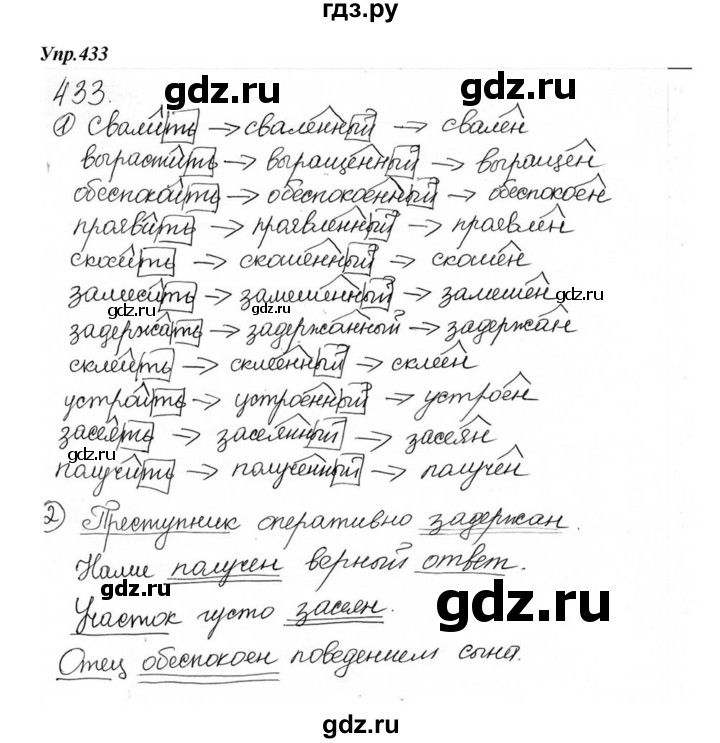 гдз.ру
Упр.433
433.
gdz.ru gdz.ru
1) свалить → сваленный → свален
вырастить → выращенный → выращен
обеспокоить → обеспокоенный → обеспокоен
проявить → проявленный → проявлен
скосить → скошенный → скошен
замесить → замешенный → замешен
gdz.ru gdz.ru
задержать → задержанный → задержан
склеить → склеенный → склеен
устроить → устроенный → устроен
засеять → засеянный → засеян
gdz.ru
получить → полученный → получен
2) Преступник оперативно задержан.
Нами получен верный ответ.
gdz.ru gdz.ru
Участок густо засеян.
Отец обеспокоен поведением сына.
gdz.ru